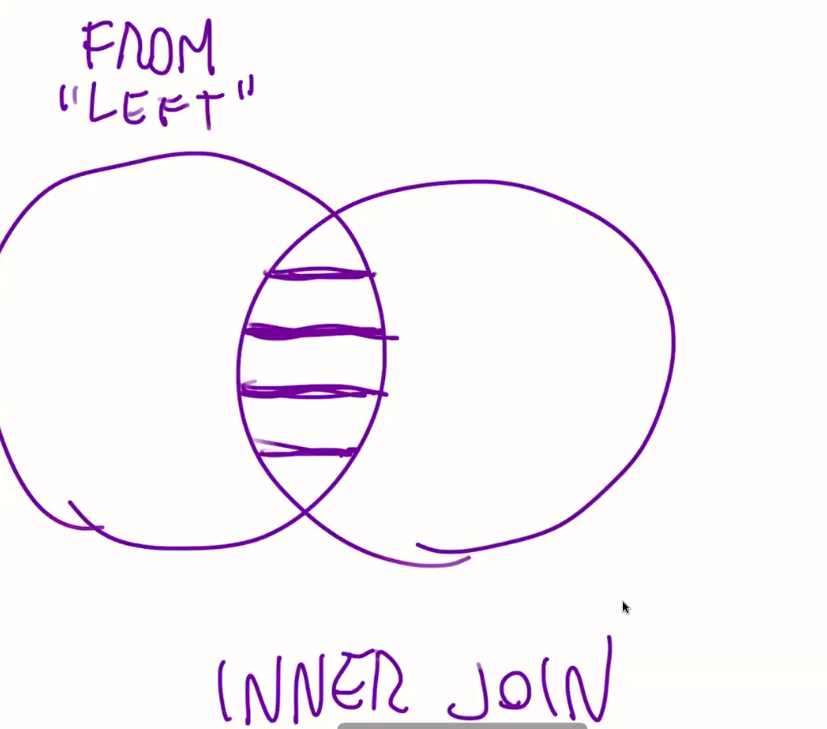 FROM
"LEFT"
INNER JOIN